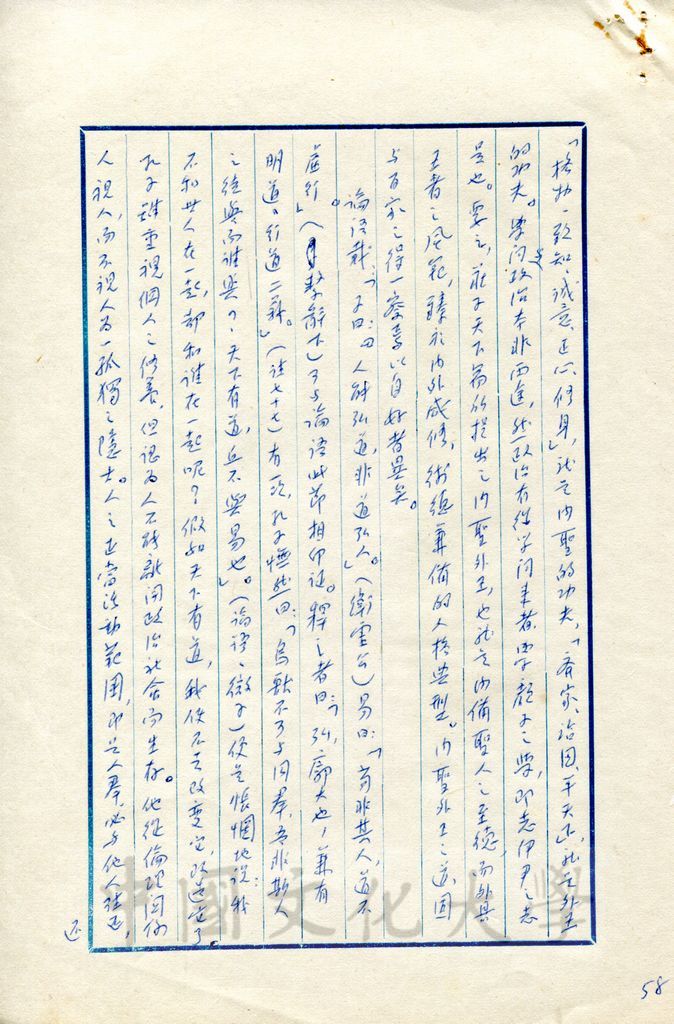 「格物、致知、誠意、正心、修身」就是內聖的功夫，「齊家、治國、平天下」就是外王
的功夫。學問與政治本非兩途，然政治有從學問來者，學顏子之學，即志伊尹之志
是也。要之，莊子天下篇所提出之內聖外王，也就是內備聖人之至德，而外具
王者之風範，臻於內外咸修，術德兼備的人格典型。內聖外王之道，固
與百家之得一察焉以自好者異矣。
論語載：「子曰：人能弘道，非道弘人。」（衛靈公）易曰：「苟非其人，道不
虛行。」（繫辭下）可與論語此節相印證。釋之者曰：「弘，廓大也，兼有
明道、行道二義。」（註七十七）有一次，孔子憮然曰：「鳥獸不可與同羣，吾非斯人
之徒與而誰與？天下有道，丘不與易也。」（論語、微子）便是悵惘地說：我
不和世人在一起，却和誰在一起呢？假如天下有道，我便不去改變它、改造它了。
孔子雖重視個人之修養，但認為人不能離開政治社會而生存。他從倫理關係
人視人，而不視人為一孤獨之隱士。人之正當活動範圍，即是人羣，必與他人
还
58
中國文化大學